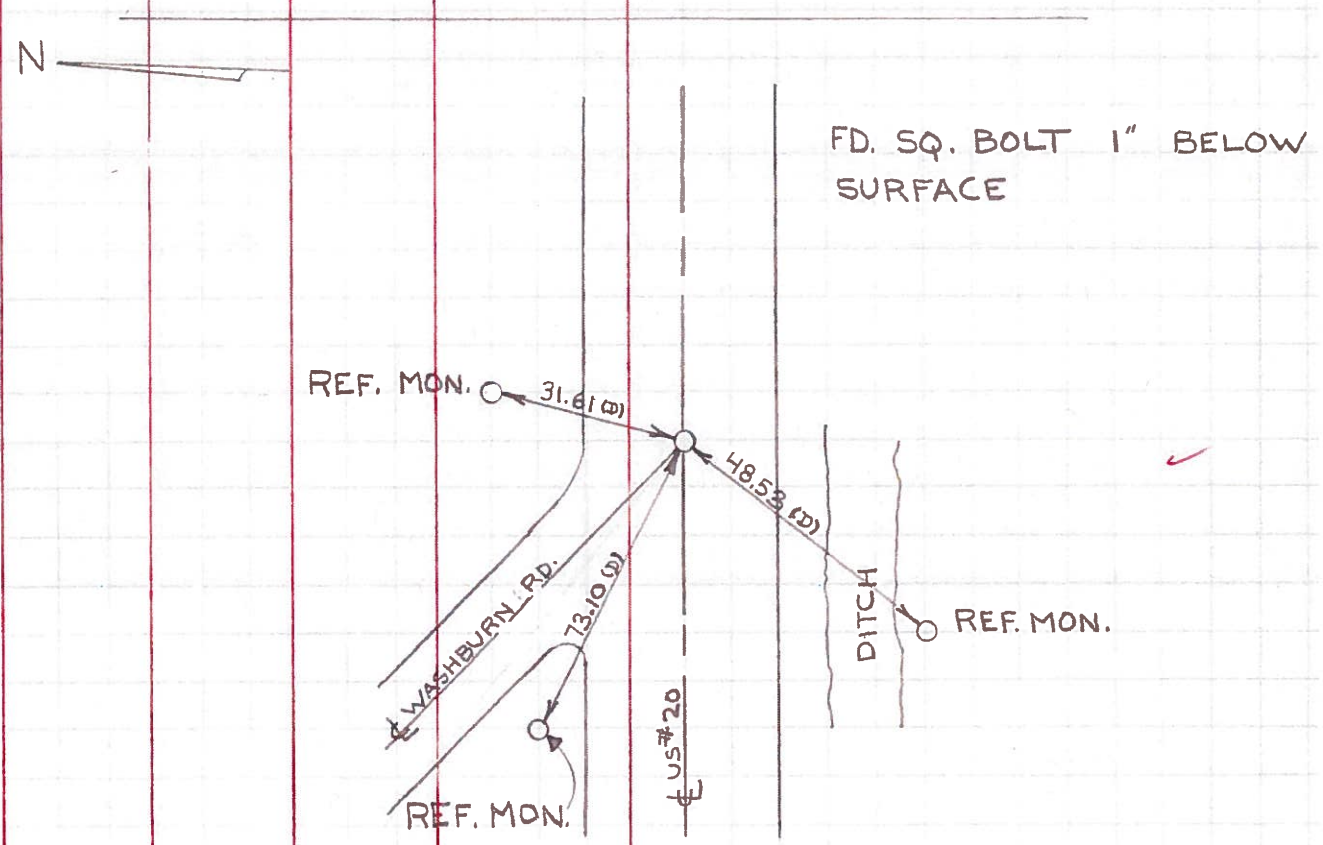 N
FD. SQ. BOLT 1" BELOW
SURFACE
REF. MON.
31.61 (D)
48.53 (D)
73.10 (D)
℄ WASHBURN RD.
DITCH
REF. MON.
℄ US #20
REF. MON.